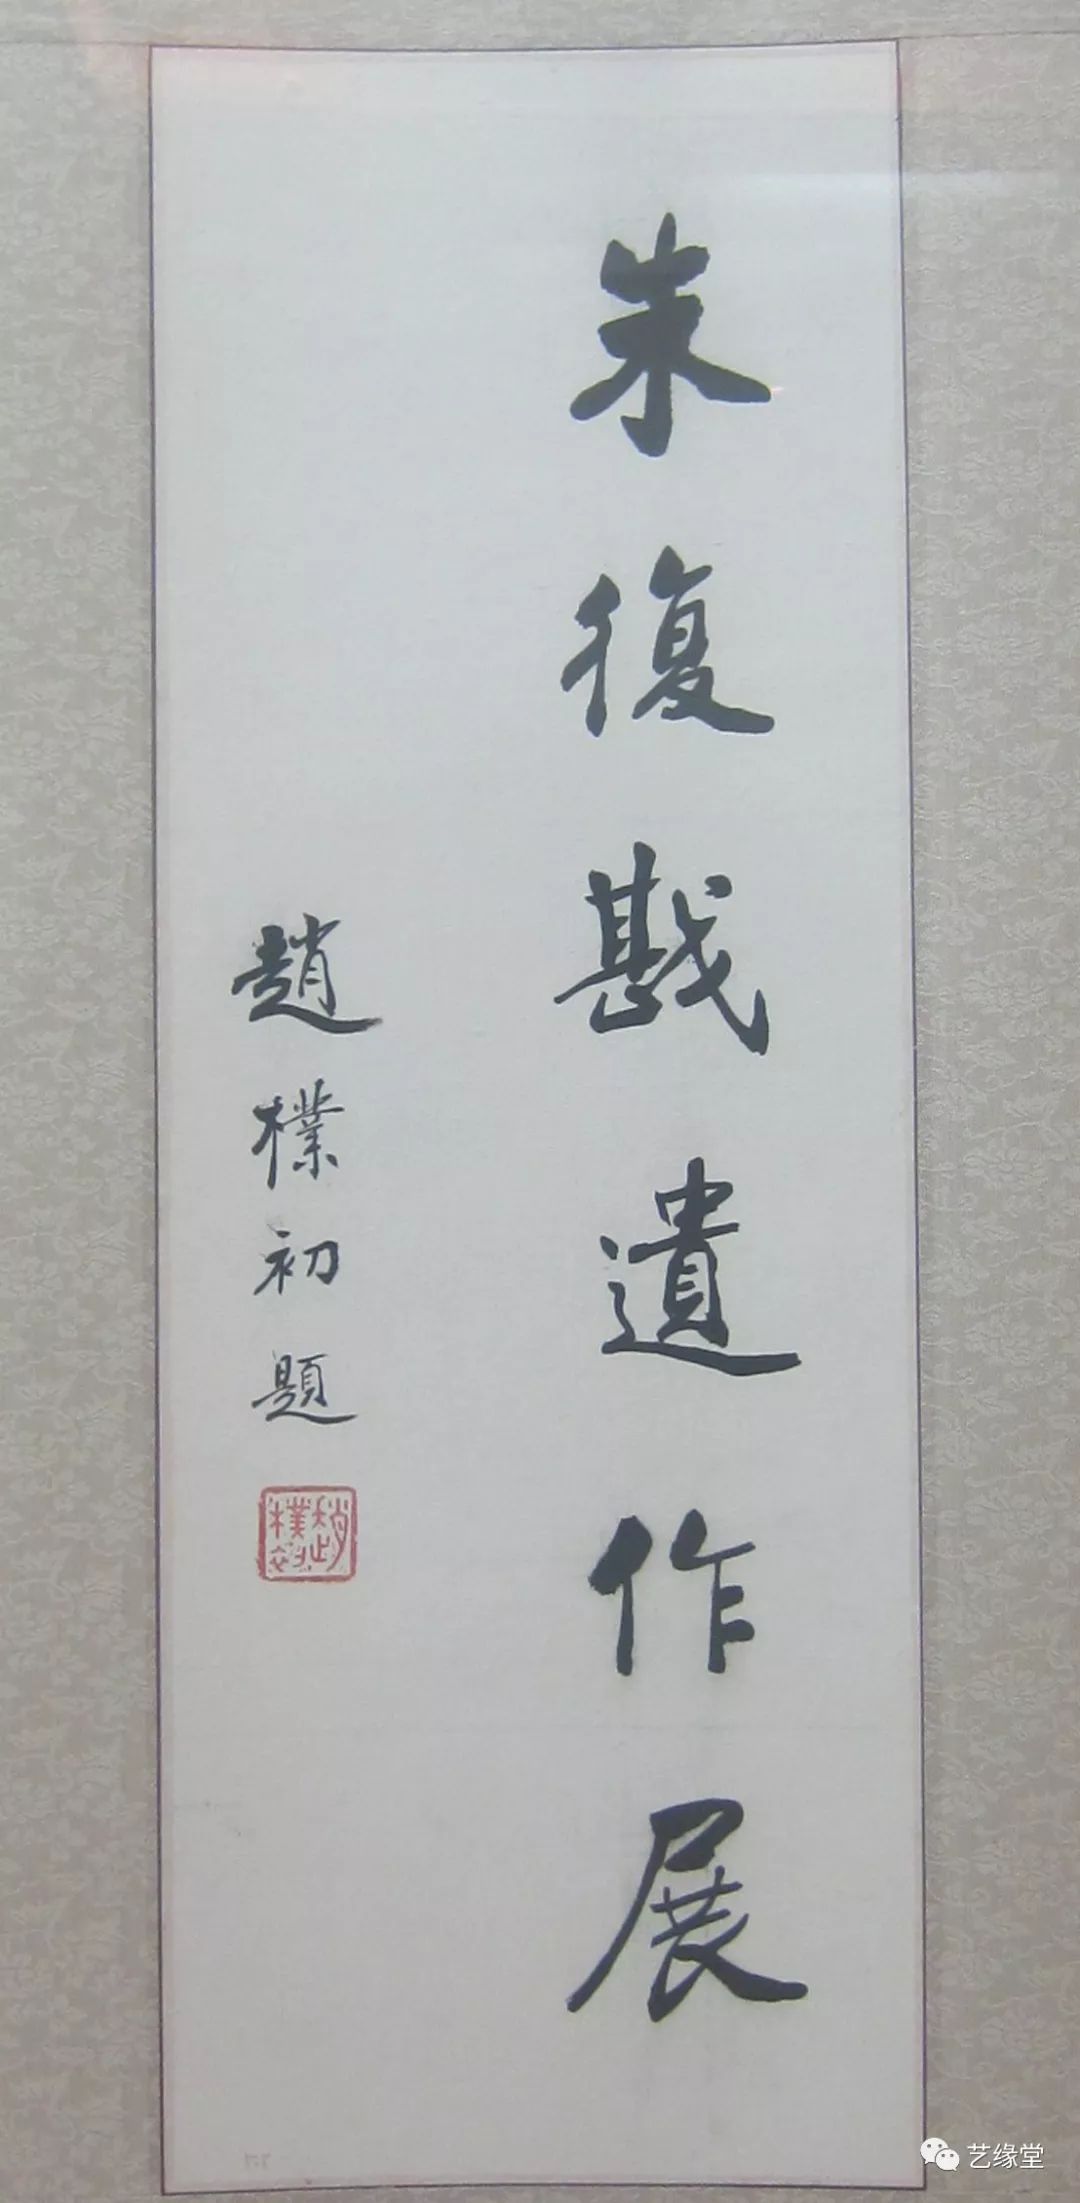 朱復戡遺作展
趙樸初題
趙樸初
艺缘堂